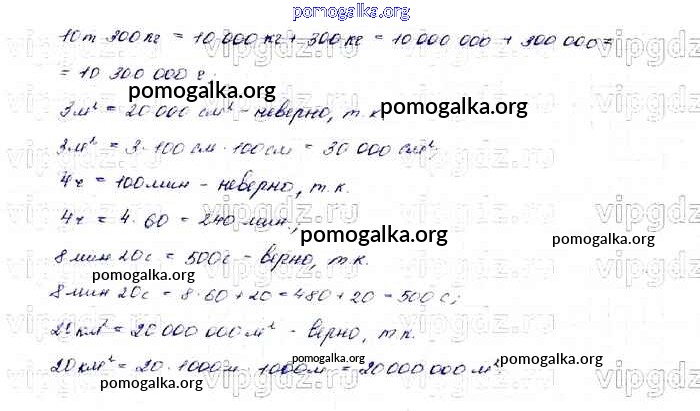 pomogalka.org
10 т 300 кг = 10 000 кг + 300 кг = 10 000 000 + 300 000 =
= 10 300 000 г;
pomogalka.org
3 м² = 20 000 см² - неверно, т.к.
pomogalka.org
3 м² = 3 · 100 см · 100 см = 30 000 см²;
4 ч = 100 мин - неверно, т.к.
4 ч = 4 · 60 = 240 мин.;
pomogalka.org
8 мин 20 с = 500 с - верно, т.к.
pomogalka.org
8 мин 20 с = 8 · 60 + 20 = 480 + 20 = 500 с;
20 км² = 20 000 000 м² - верно, т.к.
pomogalka.org
20 км² = 20 · 1000 м · 1000 м = 20 000 000 м².
pomogalka.org
pomogalka.org
vipgdz.ru